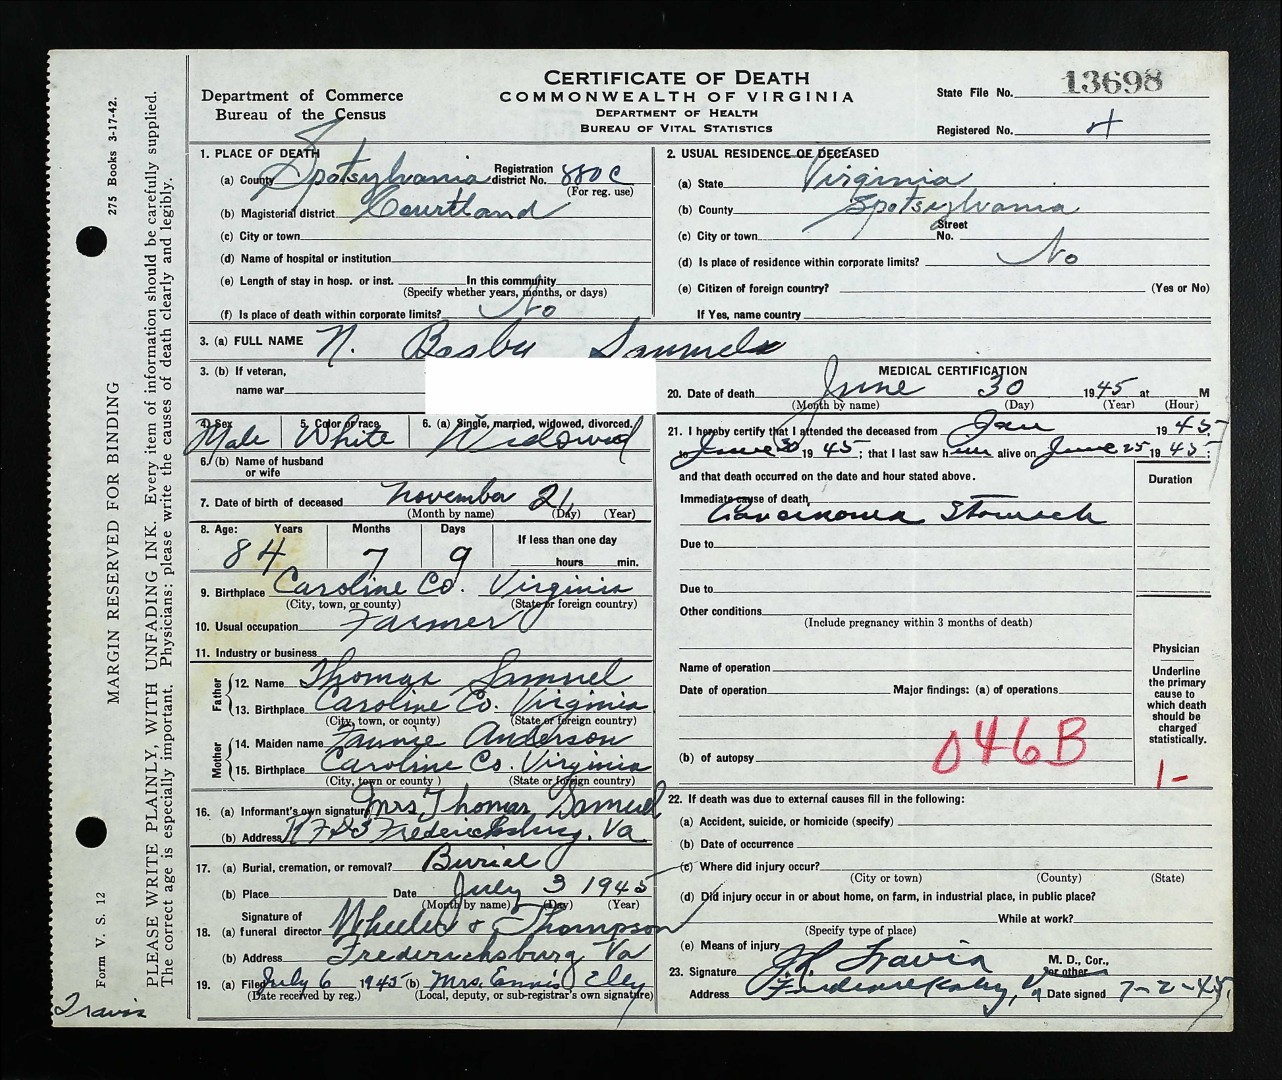 CERTIFICATE OF DEATH
COMMONWEALTH OF VIRGINIA
DEPARTMENT OF HEALTH
BUREAU OF VITAL STATISTICS
Department of Commerce
Bureau of the Census
State File No. 13698
Registered No. 4
275 Books 3-17-42.
MARGIN RESERVED FOR BINDING
PLEASE WRITE PLAINLY, WITH UNFADING INK. Every item of information should be carefully supplied.
The correct age is especially important. Physicians: please write the causes of death clearly and legibly.
Form V. S. 12
Travis
1. PLACE OF DEATH
(a) County Spotsylvania Registration district No. 880C
(For reg. use)
(b) Magisterial district Courtland
(c) City or town
(d) Name of hospital or institution
(e) Length of stay in hosp. or inst. In this community
(Specify whether years, months, or days)
(f) Is place of death within corporate limits? No
2. USUAL RESIDENCE OF DECEASED
(a) State Virginia
(b) County Spotsylvania
(c) City or town Street No.
(d) Is place of residence within corporate limits? No
(e) Citizen of foreign country? (Yes or No)
If Yes, name country
3. (a) FULL NAME N. Bosby Samuel
3. (b) If veteran,
name war
4. Sex 5. Color or race 6. (a) Single, married, widowed, divorced.
Male White Widowed
6. (b) Name of husband
or wife
7. Date of birth of deceased November 21
(Month by name) (Day) (Year)
8. Age: Years Months Days If less than one day
84 7 9 hours min.
9. Birthplace Caroline Co. Virginia
(City, town, or county) (State or foreign country)
10. Usual occupation Farmer
11. Industry or business
Father
12. Name Thomas Samuel
13. Birthplace Caroline Co. Virginia
(City, town, or county) (State or foreign country)
Mother
14. Maiden name Fannie Anderson
15. Birthplace Caroline Co. Virginia
(City, town or county) (State or foreign country)
16. (a) Informant's own signature Mrs Thomas Samuel
(b) Address RFD3 Fredericksburg, Va
17. (a) Burial, cremation, or removal? Burial
(b) Place Date July 3 1945
(Month by name) (Day) (Year)
Signature of
18. (a) funeral director Wheeler & Thompson
(b) Address Fredericksburg Va
19. (a) Filed July 6 1945 (b) Mrs. Ennis Eley
(Date received by reg.) (Local, deputy, or sub-registrar's own signature)
MEDICAL CERTIFICATION
20. Date of death June 30 1945 at M
(Month by name) (Day) (Year) (Hour)
21. I hereby certify that I attended the deceased from Jan 1945
to June 30 1945; that I last saw him alive on June 25 1945;
and that death occurred on the date and hour stated above.
Duration
Immediate cause of death
Carcinoma Stomach
Due to
Due to
Other conditions
(Include pregnancy within 3 months of death)
Name of operation
Date of operation Major findings: (a) of operations
(b) of autopsy
046B
Physician
Underline the primary cause to which death should be charged statistically.
1-
22. If death was due to external causes fill in the following:
(a) Accident, suicide, or homicide (specify)
(b) Date of occurrence
(c) Where did injury occur?
(City or town) (County) (State)
(d) Did injury occur in or about home, on farm, in industrial place, in public place?
While at work?
(Specify type of place)
(e) Means of injury
23. Signature Travis M. D., Cor., or other
Address Fredericksburg, Va Date signed 7-2-45